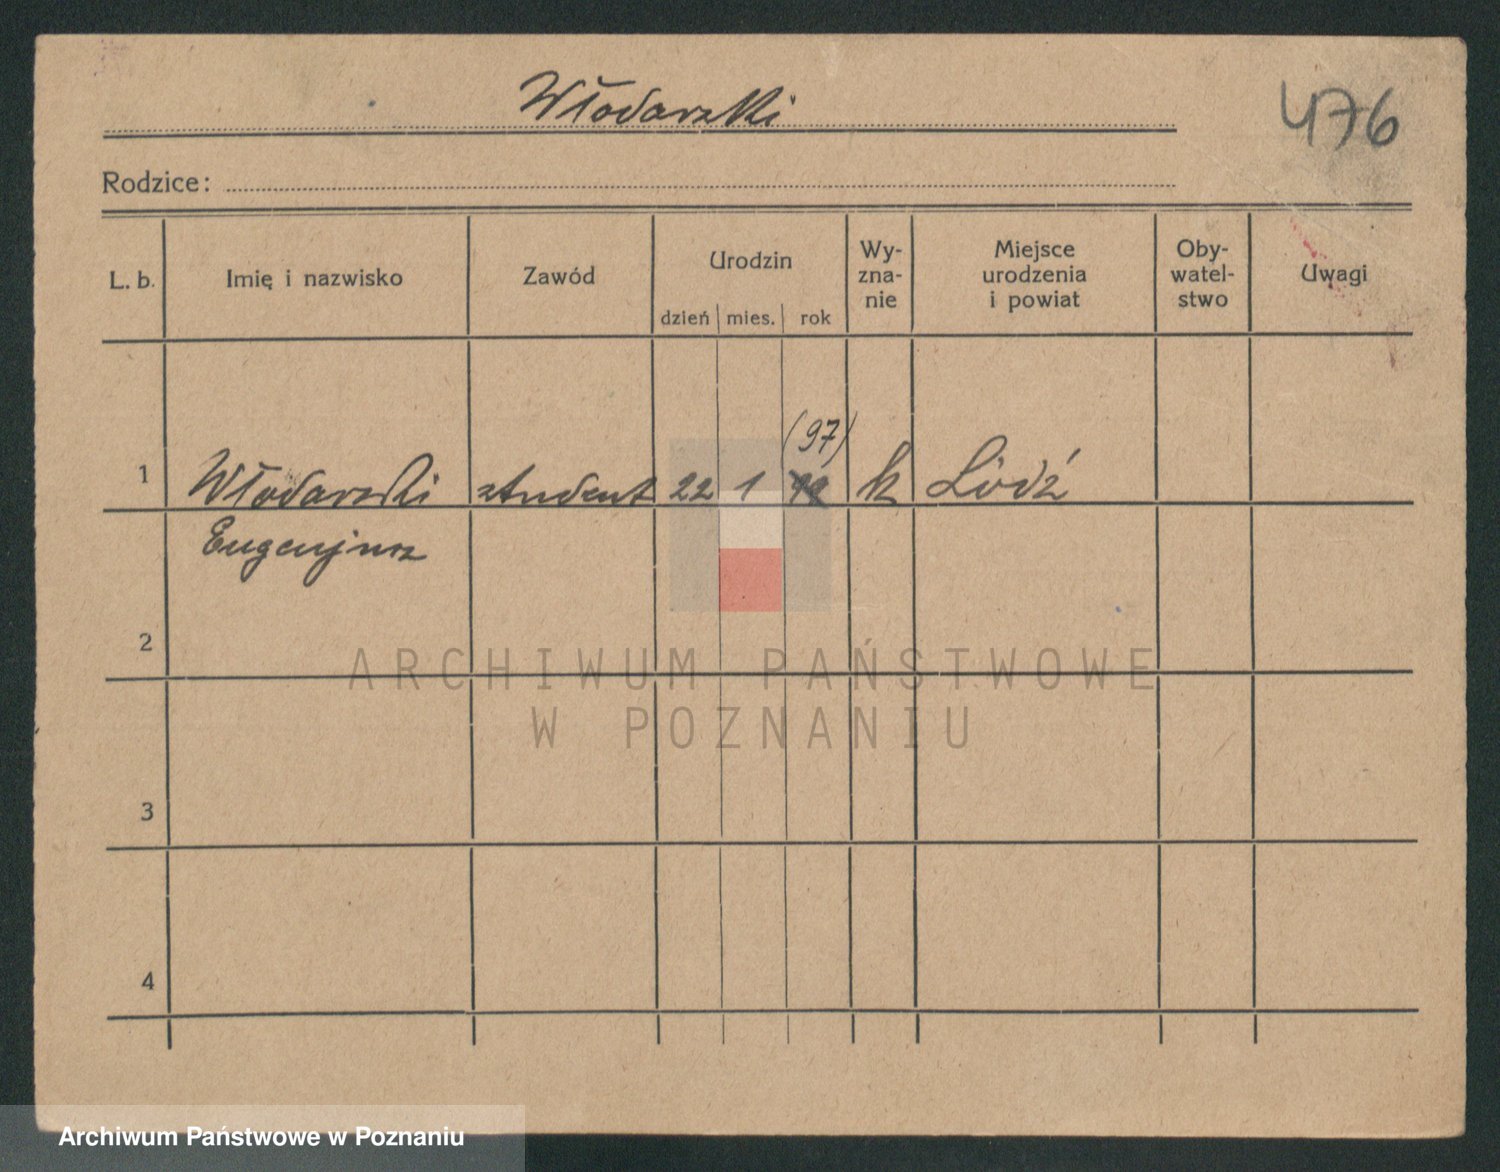 Włodarski
476
Rodzice:
L. b.
Imię i nazwisko
Zawód
Urodzin
dzień mies. rok
Wy-
zna-
nie
Miejsce
urodzenia
i powiat
Oby-
watel-
stwo
Uwagi
(97)
1 Włodarski student 22 1 k Łódź
Eugenjusz
2
3
4
ARCHIWUM PAŃSTWOWE
W POZNANIU
Archiwum Państwowe w Poznaniu